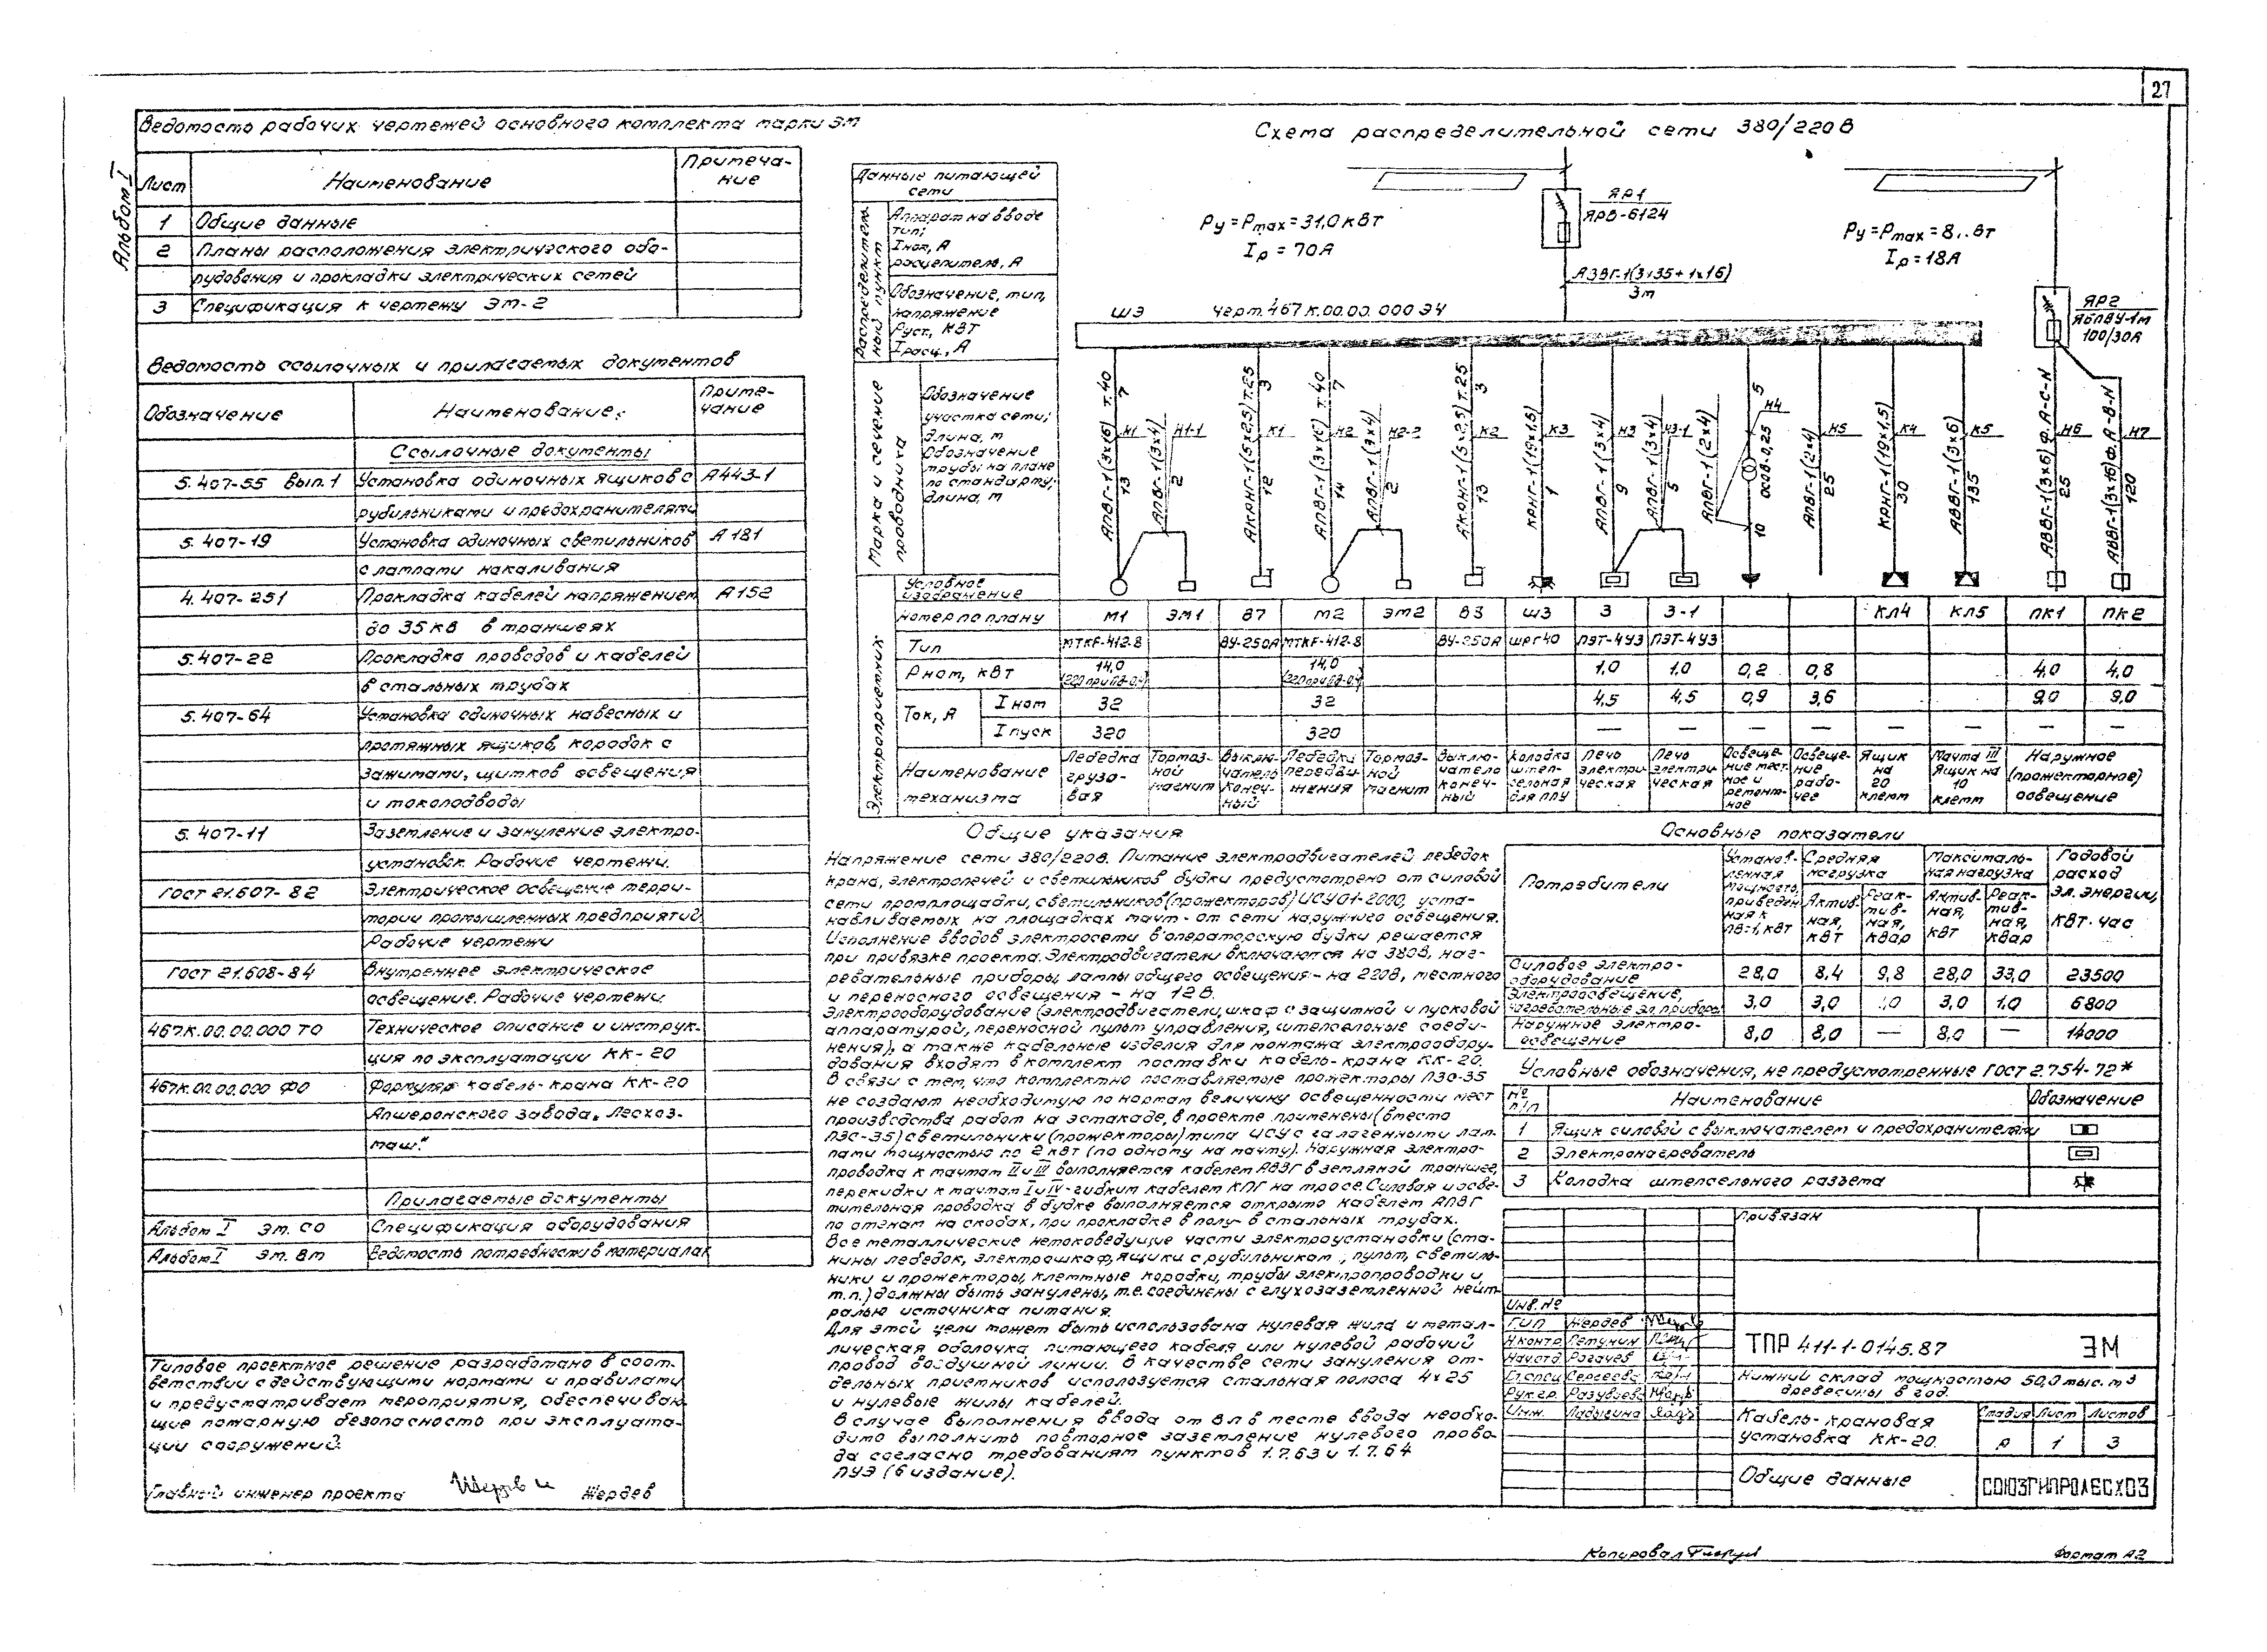 27
Альбом I
Ведомость рабочих чертежей основного комплекта марки ЭМ
Лист Наименование Примеча-
ние
1 Общие данные
2 Планы расположения электрического обо-
рудования и прокладки электрических сетей
3 Спецификация к чертежу ЭМ-2
Ведомость ссылочных и прилагаемых документов
Обозначение Наименование Приме-
чание
Ссылочные документы
5.407-55 вып.1 Установка одиночных ящиков с А443-1
рубильниками и предохранителями
5.407-19 Установка одиночных светильников А181
с лампами накаливания
4.407-251 Прокладка кабелей напряжением А152
до 35кв в траншеях
5.407-22 Прокладка проводов и кабелей
в стальных трубах
5.407-64 Установка одиночных навесных и
протяжных ящиков, коробок с
зажимами, щитков освещения
и токоподводы
5.407-11 Заземление и зануление электро-
установок. Рабочие чертежи.
ГОСТ 21.607-82 Электрическое освещение терри-
тории промышленных предприятий.
Рабочие чертежи
ГОСТ 21.608-84 Внутреннее электрическое
освещение. Рабочие чертежи.
467К.00.00.000 ТО Техническое описание и инструк-
ция по эксплуатации КК-20
467К.00.00.000 ФО Формуляр кабель-крана КК-20
Апшеронского завода „Лесхоз-
маш“
Прилагаемые документы
Альбом I ЭМ.СО Спецификация оборудования
Альбом I ЭМ.ВМ Ведомость потребности в материалах
Типовое проектное решение разработано в соот-
ветствии с действующими нормами и правилами
и предусматривает мероприятия, обеспечиваю-
щие пожарную безопасность при эксплуата-
ции сооружений.
Главный инженер проекта Жердев
Схема распределительной сети 380/220 В
Данные питающей
сети
Распределитель-
ный пункт
Аппарат на вводе
тип;
Iном, А
расцепителя, А
Обозначение, тип,
напряжение
Руст., кВт
Iрасч., А
Марка и сечение
проводника
Обозначение
участка сети;
длина, м
Обозначение
трубы на плане
по стандарту;
длина, м
Ру=Рmax=31,0кВт
Iр=70А
ЯР1
ЯРВ-6124
АВВГ-1(3×35+1×16)
3м
Ру=Рmax=8
Iр=18А
ЯР2
ЯБПВУ-1м
100/30А
ШЭ черт.467К.00.00.000 Э4
АПВГ-1(3×16) т.40 Н1 13 7
АПВГ-1(3×4) Н1-1 2
АКРНГ-1(5×2,5) т.25 К1 12 3
АПВГ-1(3×16) т.40 Н2 14 7
АПВГ-1(3×4) Н2-2 2
АКРНГ-1(5×2,5) т.25 К2 13 3
КРНГ-1(19×1,5) К3 1
АПВГ-1(3×4) Н3 9
АПВГ-1(3×4) Н3-1 5
АПВГ-1(2×4) 10
ОСОВ-0,25 Н4 5
АПВГ-1(2×4) Н5 25
КРНГ-1(19×1,5) К4 30
АВВГ-1(3×6) К5 135
АВВГ-1(3×6)ф.А-С-N Н6 25
АВВГ-1(3×16)ф.А-В-N Н7 120
Электроприемник
Условное
изображение
Номер по плану М1 ЭМ1 В7 М2 ЭМ2 В3 ШЗ Э Э-1 КЛ4 КЛ5 ПК1 ПК2
Тип МТКF-412-8 ВУ-250А МТКF-412-8 ВУ-250А ШРГ40 ПЭТ-4У3 ПЭТ-4У3
Рном, кВт 14,0 14,0 1,0 1,0 0,2 0,8 4,0 4,0
Ток, А Iном 32 32 4,5 4,5 0,9 3,6 9,0 9,0
Iпуск 320 320 — — — — — — — —
Наименование
механизма
Лебедка
грузо-
вая
Тормоз-
ной
магнит
Выклю-
чатель
конеч-
ный
Лебедка
передви-
жения
Тормоз-
ной
магнит
Выклю-
чатель
конеч-
ный
Колодка
штеп-
сельная
для ППУ
Печь
электри-
ческая
Печь
электри-
ческая
Освеще-
ние мест-
ное и
ремонт-
ное
Освеще-
ние
рабо-
чее
Ящик
на
20
клемм
Мачта III
Ящик на
10
клемм
Наружное
(прожекторное)
освещение
Общие указания
Напряжение сети 380/220в. Питание электродвигателей лебедок
крана, электропечей и светильников будки предусмотрено от силовой
сети промплощадки, светильников (прожекторов) ИСУ01-2000, уста-
навливаемых на площадках мачт - от сети наружного освещения.
Исполнение вводов электросети в операторскую будку решается
при привязке проекта. Электродвигатели включаются на 380В, наг-
ревательные приборы, лампы общего освещения - на 220В, местного
и переносного освещения - на 12В.
Электрооборудование (электродвигатели, шкаф с защитной и пусковой
аппаратурой, переносной пульт управления, штепсельные соеди-
нения), а также кабельные изделия для монтажа электрообору-
дования входят в комплект поставки кабель-крана КК-20.
В связи с тем, что комплектно поставляемые прожекторы ПЗС-35
не создают необходимую по нормам величину освещенности мест
производства работ на эстакаде, в проекте применены (вместо
ПЗС-35) светильники (прожекторы) типа ИСУ с галогенными лам-
пами мощностью по 2 кВт (по одному на мачту). Наружная электро-
проводка к мачтам II и III выполняется кабелем АВВГ в земляной траншее,
перекидки к мачтам I и IV - гибким кабелем КПГ на тросе. Силовая и осве-
тительная проводка в будке выполняется открыто кабелем АПВГ
по стенам на скобах, при прокладке в полу - в стальных трубах.
Все металлические нетоковедущие части электроустановки (ста-
нины лебедок, электрошкаф, ящики с рубильником, пульт, светиль-
ники и прожекторы, клеммные коробки, трубы электропроводки и
т.п.) должны быть занулены, т.е. соединены с глухозаземленной нейт-
ралью источника питания.
Для этой цели может быть использована нулевая жила и метал-
лическая оболочка питающего кабеля или нулевой рабочий
провод воздушной линии. В качестве сети зануления от-
дельных приемников используется стальная полоса 4×25
и нулевые жилы кабелей.
В случае выполнения ввода от ВЛ в месте ввода необхо-
димо выполнить повторное заземление нулевого прово-
да согласно требованиям пунктов 1.7.63 и 1.7.64
ПУЭ (6 издание).
Основные показатели
Потребители
Установ-
ленная
мощность,
приведен-
ная к
ПВ=1, кВт
Средняя
нагрузка
Актив-
ная,
кВт
Реак-
тив-
ная,
квар
Максималь-
ная нагрузка
Актив-
ная,
кВт
Реак-
тив-
ная,
квар
Годовой
расход
эл. энергии,
кВт·час
Силовое электро-
оборудование 28,0 8,4 9,8 28,0 33,0 23500
Электроосвещение,
нагревательные эл. приборы 3,0 3,0 3,0 1,0 6800
Наружное электро-
освещение 8,0 8,0 — 8,0 — 14000
Условные обозначения, не предусмотренные ГОСТ 2.754-72*
№
п/п Наименование Обозначение
1 Ящик силовой с выключателем и предохранителями
2 Электронагреватель
3 Колодка штепсельного разъема
Привязан
Инв.№
ГИП Жердев
Н.контр Петунин
Нач.отд Рогачев
Гл.спец Сергеева
Рук.гр. Разуваева
Инж. Ладыгина
ТПР 411-1-0145.87 ЭМ
Нижний склад мощностью 50,0 тыс. м³
древесины в год.
Кабель-крановая
установка КК-20.
Стадия Лист Листов
Р 1 3
Общие данные
СОЮЗГИПРОЛЕСХОЗ
Копировал
Формат А2